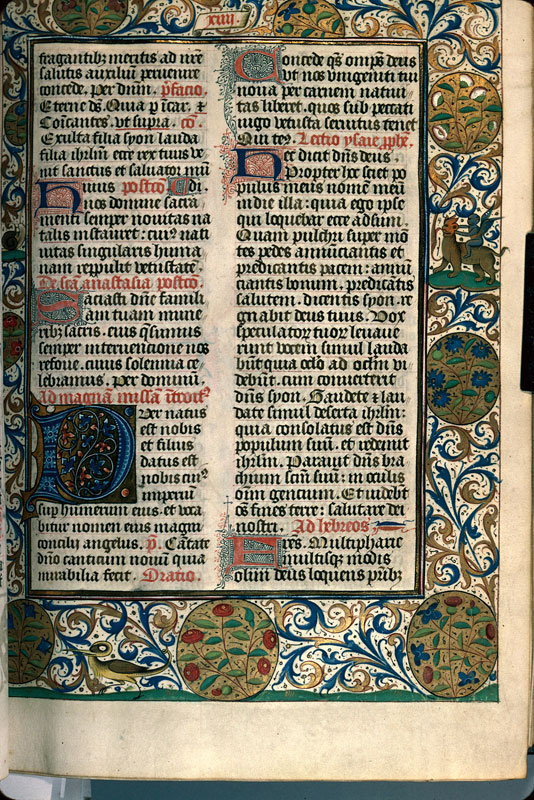 xiiij.
fragantibꝫ meritis ad nr̄e
salutis auxiliū peruenire
concede. Per dnm̄. p̄facio.
Eterne ds̄. Quia p īcar. ⁊
Cōicantes. vt supra. cō.
Exulta filia syon lauda
filia ihrlm̄ ecce rex tuus ve
nit sanctus et saluator mū
di. Huius postcō
nos domine sacra
menti semper nouitas na
talis instauret: cuiꝰ nati
uitas singularis huma
nam reppulit vetustatē.
De scā anastasia postcō.
Saciasti dn̄e famili
am tuam mune
ribꝫ sacris. eius qs̄umus
semper interuencione nos
refoue. cuius solennia ce
lebramus. Per dominū.
Ad magnā missā ītroitꝰ
Puer natus
est nobis
et filius
datus est
nobis cuiꝰ
imperiū
sup humerum eius. et voca
bitur nomen eius magni
concilij angelus. p̄. Cātate
dn̄o canticum nouū quia
mirabilia fecit. Oratio.
Concede qs̄ omp̄s deus
vt nos vnigeniti tui
noua per carnem natiui
tas liberet. quos sub peccati
iugo vetusta seruitus tenet
Qui tec̄. Lectio ysaie. pphe.
Hec dicit dn̄s deus.
Propter hoc sciet po
pulus meus nomē meū
in die illa: quia ego ipse
qui loquebar ecce adsum.
Quam pulchri super mō
tes pedes annūciantis et
predicantis pacem: annū
ciantis bonum. predicātis
salutem. dicentis syon. re
gnabit deus tuus. Vox
speculatorꝫ tuorꝫ leuaue
runt vocem simul lauda
būt quia oc̄lo ad oc̄lm vi
debūt. cum conuerterit
dn̄s syon. Gaudete ⁊ lau
date simul deserta ihrlm̄:
quia consolatus est dn̄s
populum suū. et redemit
ihrlm̄. Parauit dn̄s bra
chium scm̄ suū: in oculis
oīm gencium. Et videbt̄
oēs fines terre: salutare dei
nostri. Ad hebreos
Fres. Multipharie
multisqꝫ modis
olim deus loquens p̄ribꝫ